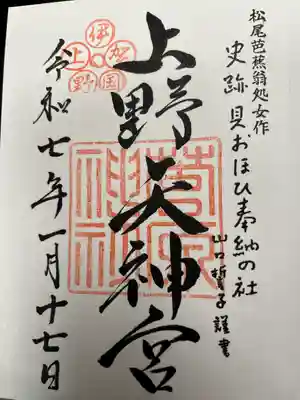 松尾芭蕉翁処女作
史跡 貝おほひ奉納の社
山口誓子謹書
上野天神宮
伊賀国上野
令和七年一月十七日